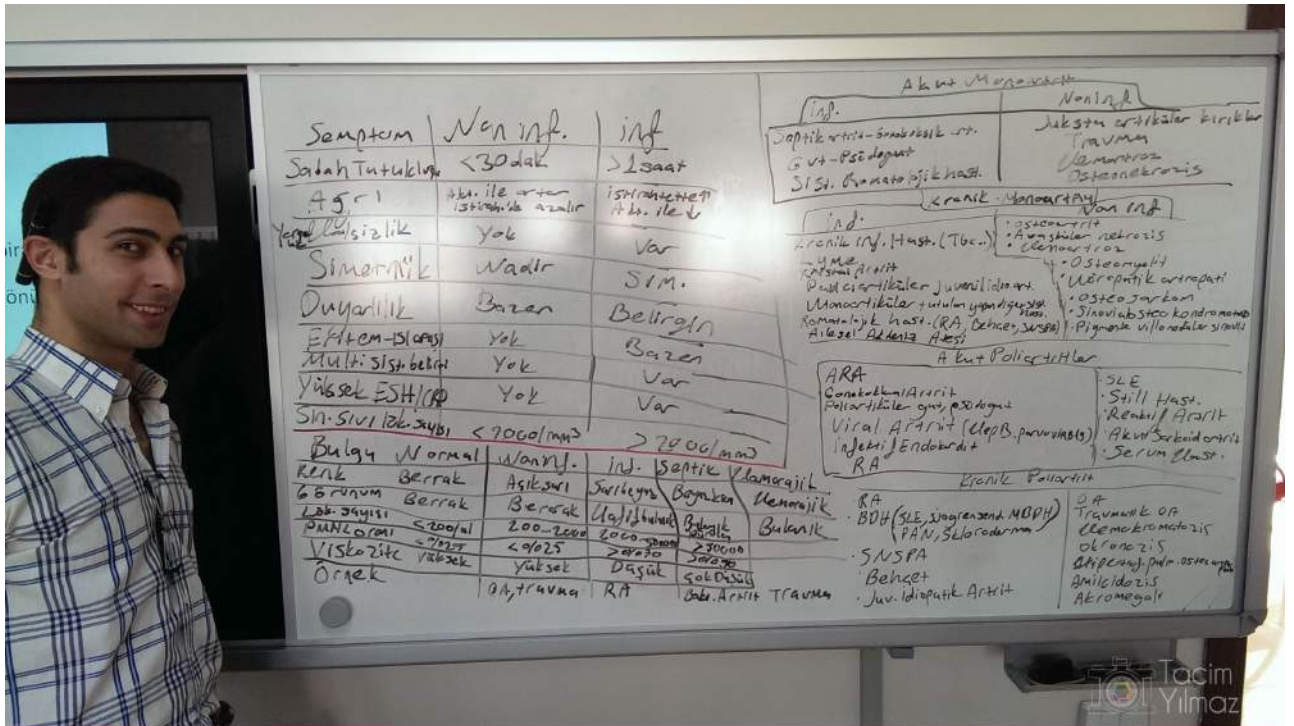 Semptom Non inf. inf
Sabah Tutukluğu <30 dak >1 saat
Ağrı Akt. ile artar istirahatte↑
istirah.'de azalır Akt. ile ↓
Yok Var
Simetrik Nadir Sim.
Duyarlılık Bazen Belirgin
Eritem-ısı artışı Yok Bazen
Multi. sist. belirti Yok Var
Yüksek ESH/CRP Yok Var
Sin. sıvı lök. sayısı <2000/mm³ >2000/mm³
Bulgu Normal Noninf. inf. Septik Hemorajik
Renk Berrak Açık sarı Hemorajik
Görünüm Berrak Berrak Bulanık Bulanık
Lök. sayısı <200/ul 200-2000 >50000
PMNL oranı <%25 <%25
Viskozite Yüksek Yüksek Düşük Çok Düşük
Örnek OA, travma RA Bakt. Artrit Travma
Akut Monoartrit
inf. Noninf.
Septik artrit-Gonokoksik art.
Gut-Psödogut
Sist. Romatolojik hast.
Juksta artiküler kırıklar
Travma
Hemartroz
Osteonekrozis
Kronik Monoartrit
inf. Non inf
Kronik inf. Hast. (Tbc..)
Lyme
Kristal Artrit
Pauciartiküler juvenil idio art.
Monoartiküler tutulum yapan diğer sist.
Romatolojik hast. (RA, Behçet, SNSPA)
Ailesel Akdeniz Ateşi
• Osteoartrit
• Avasküler nekrozis
• Hemartroz
• Osteomyelit
• Nöropatik artropati
• Osteosarkom
• Pigmente villonodüler sinovit
Akut Poliartritler
ARA
Gonokokkal Artrit
Poliartiküler gut, psödogut
Viral Artrit (HepB, parvovirus B19)
İnfektif Endokardit
RA
• SLE
• Still Hast.
• Reaktif Artrit
• Akut Sarkoid artrit
• Serum Hast.
Kronik Poliartrit
RA
• BDH (SLE, sjogren send. MBDH)
PAN, Skleroderma
• SNSPA
• Behçet
• Juv. İdiopatik Artrit
OA
Travmatik OA
Hemokromatozis
Okronozis
Amiloidozis
Akromegali
Tacim
Yılmaz